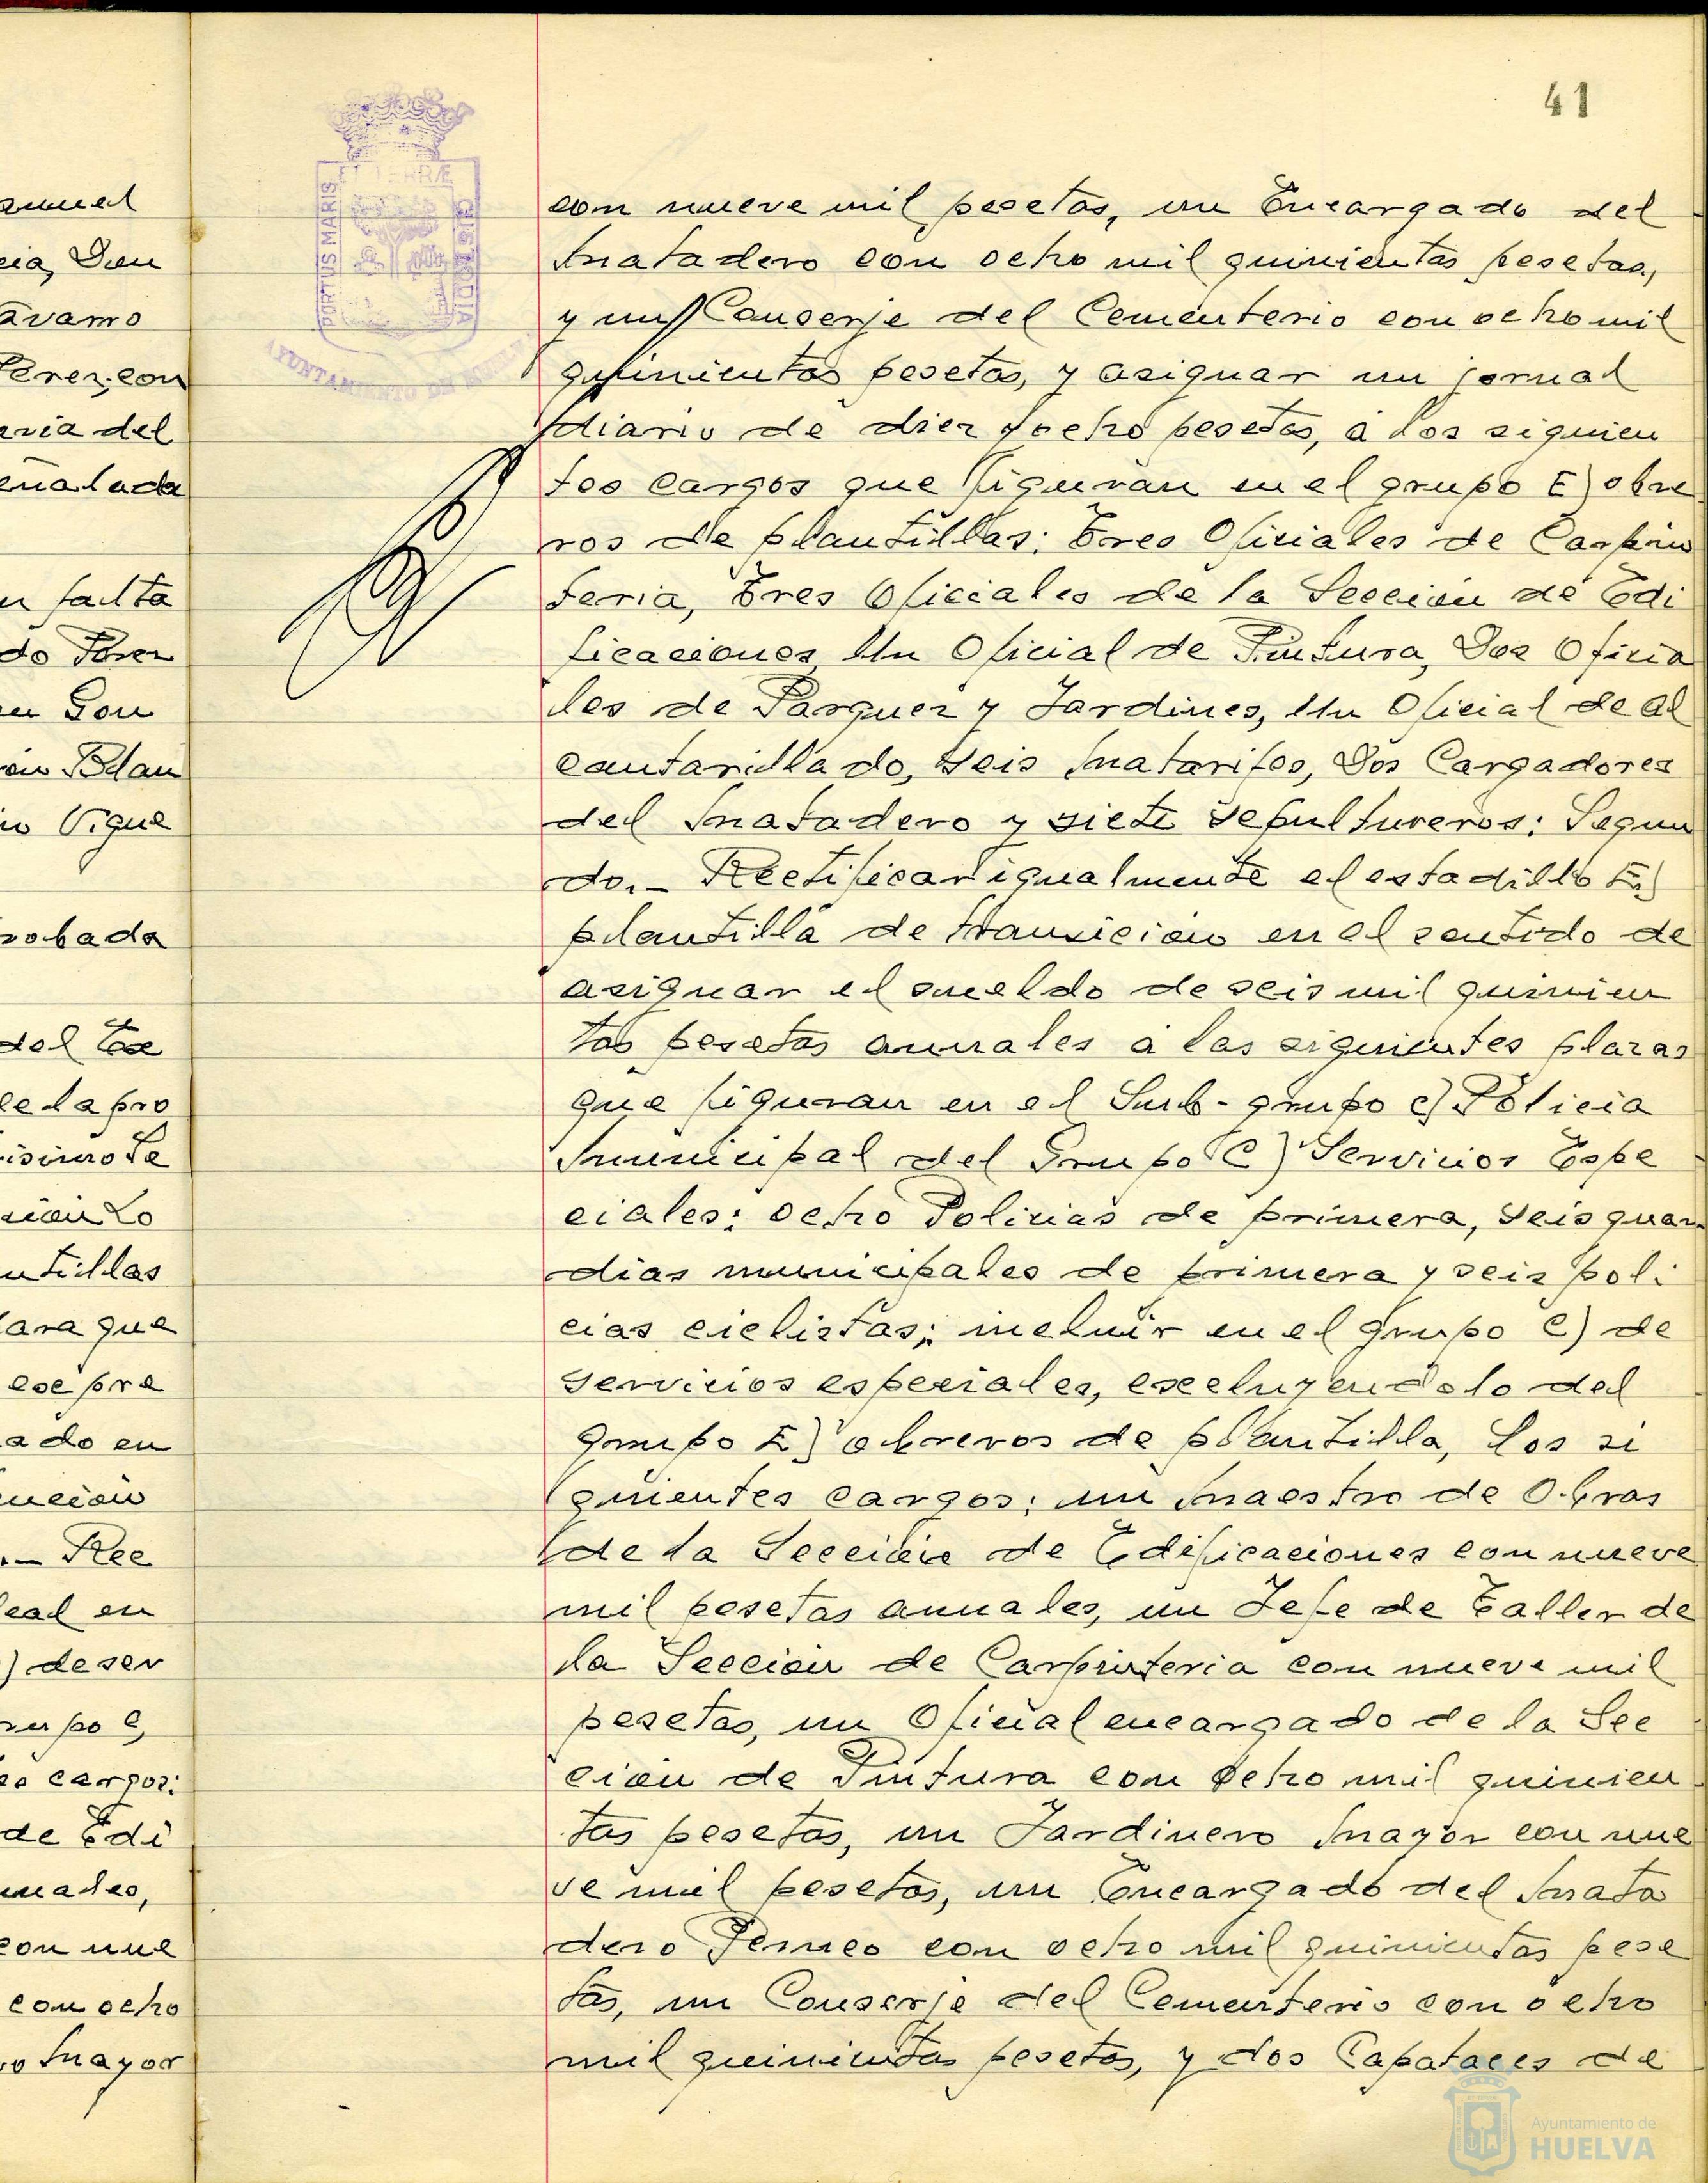 41
ET TERRÆ
PORTUS MARIS
CUSTODIA
AYUNTAMIENTO DE HUELVA
con nueve mil pesetas, un Encargado del
Matadero con ocho mil quinientas pesetas,
y un Conserje del Cementerio con ocho mil
quinientas pesetas, y asignar un jornal
diario de diez y ocho pesetas, a los siguien
tes cargos que figuran en el grupo E) obre
ros de plantillas: Tres Oficiales de Carpin
teria, Tres Oficiales de la Sección de Edi
ficaciones, Un Oficial de Pintura, Dos Oficia
les de Parques y Jardines, Un Oficial de al
cantarillado, seis Matarifes, Dos Cargadores
del Matadero y siete sepultureros: Segun
do.- Rectificar igualmente el estadillo E)
plantilla de transición en el sentido de
asignar el sueldo de seis mil quinien
tas pesetas anuales a las siguientes plazas
que figuran en el Sub-grupo c) Policia
Municipal del Grupo C) Servicios Espe
ciales: ocho Policias de primera, seis guar
dias municipales de primera y seis poli
cias ciclistas; incluir en el grupo C) de
servicios especiales, escluyendolo del
Grupo E) obreros de plantilla, los si
guientes cargos: un Maestro de Obras
de la Sección de Edificaciones con nueve
mil pesetas anuales, un Jefe de Taller de
la Sección de Carpinteria con nueve mil
pesetas, un Oficial encargado de la Sec
ción de Pintura con ocho mil quinien
tas pesetas, un Jardinero Mayor con nue
ve mil pesetas, un Encargado del Mata
dero Pemeo con ocho mil quinientas pese
tas, un Conserje del Cementerio con ocho
mil quinientas pesetas, y dos Capataces de
Ayuntamiento de
HUELVA